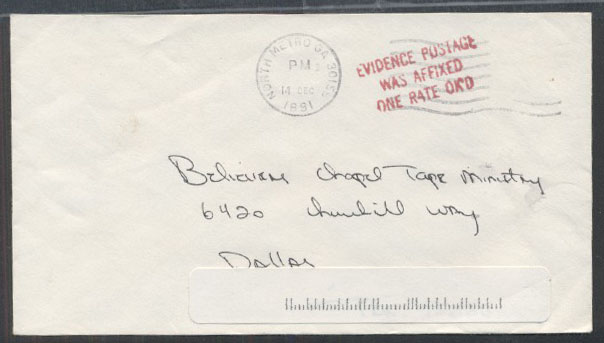 NORTH METRO GA 30136
PM
14 DEC
1991
EVIDENCE POSTAGE
WAS AFFIXED
ONE RATE OKD
Believers Chapel Tape Ministry
6420 Churchill Way
Dallas